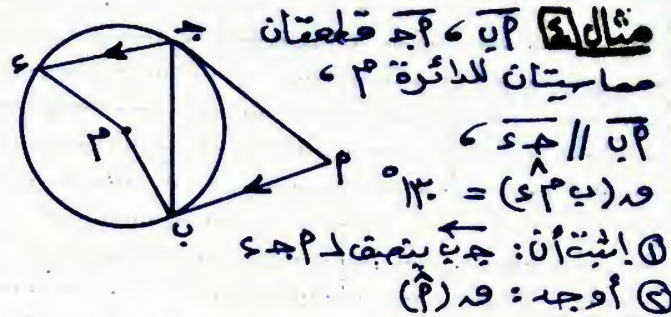 مثال ٤ أب ، أج قطعتان
مماسيتان للدائرة م ،
أب // جـ د ،
ق (ب م د) = ١٣٠°
① اثبت أن: جـ ب ينصف ∠ أ جـ د
② أوجد: ق (أ)
جـ
د
م
أ
ب